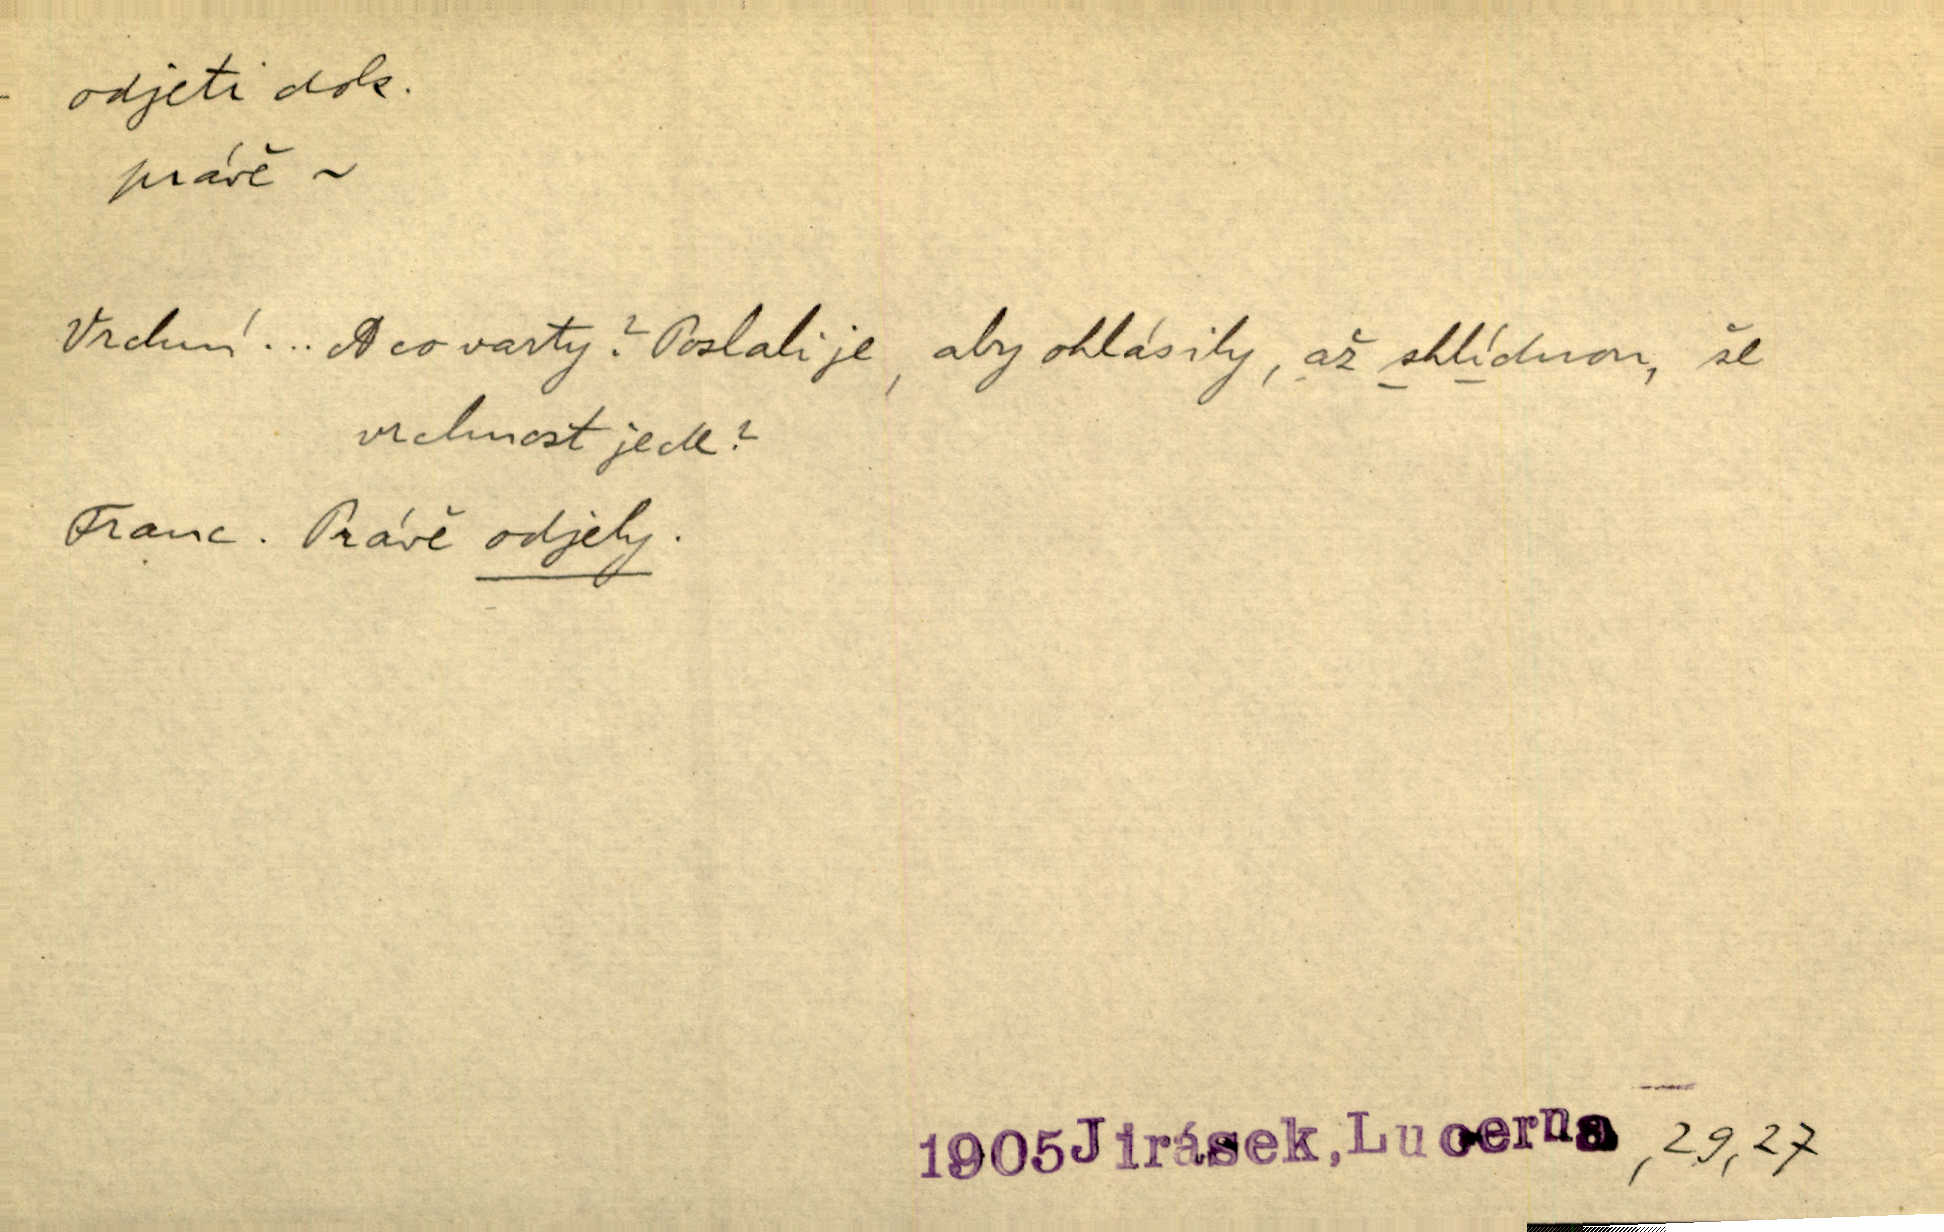 odjeti dok.
právě ~
Vrchní ... A co varty? Poslali je, aby ohlásily, až shlídnou, že
vrchnost jede?
Franc. Právě odjely.
1905 Jirásek, Lucerna, 29, 27